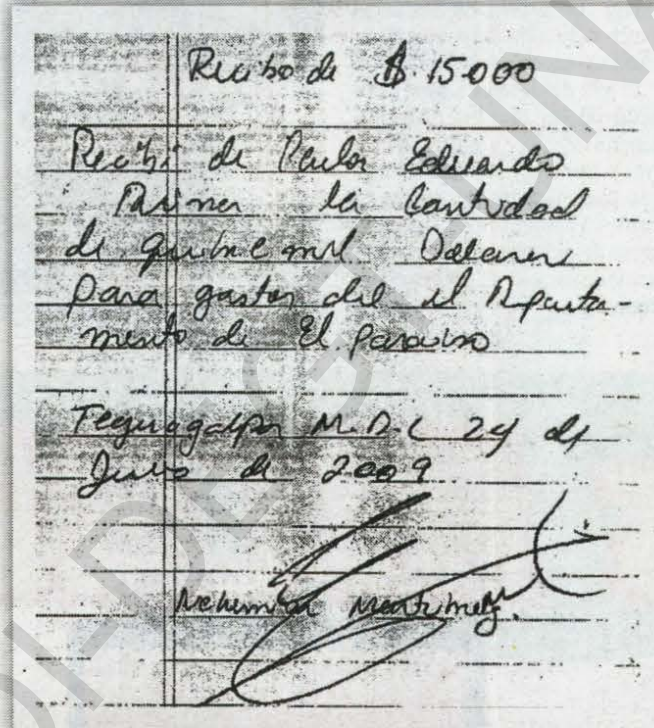 Recibo de $. 15000
Recibi de Carlos Eduardo
la Cantidad
de quince mil Dolares
para gastos del el Departa-
mento de El Paraiso
Tegucigalpa M.D.C 24 de
Junio de 2009
Nehemias Martinez